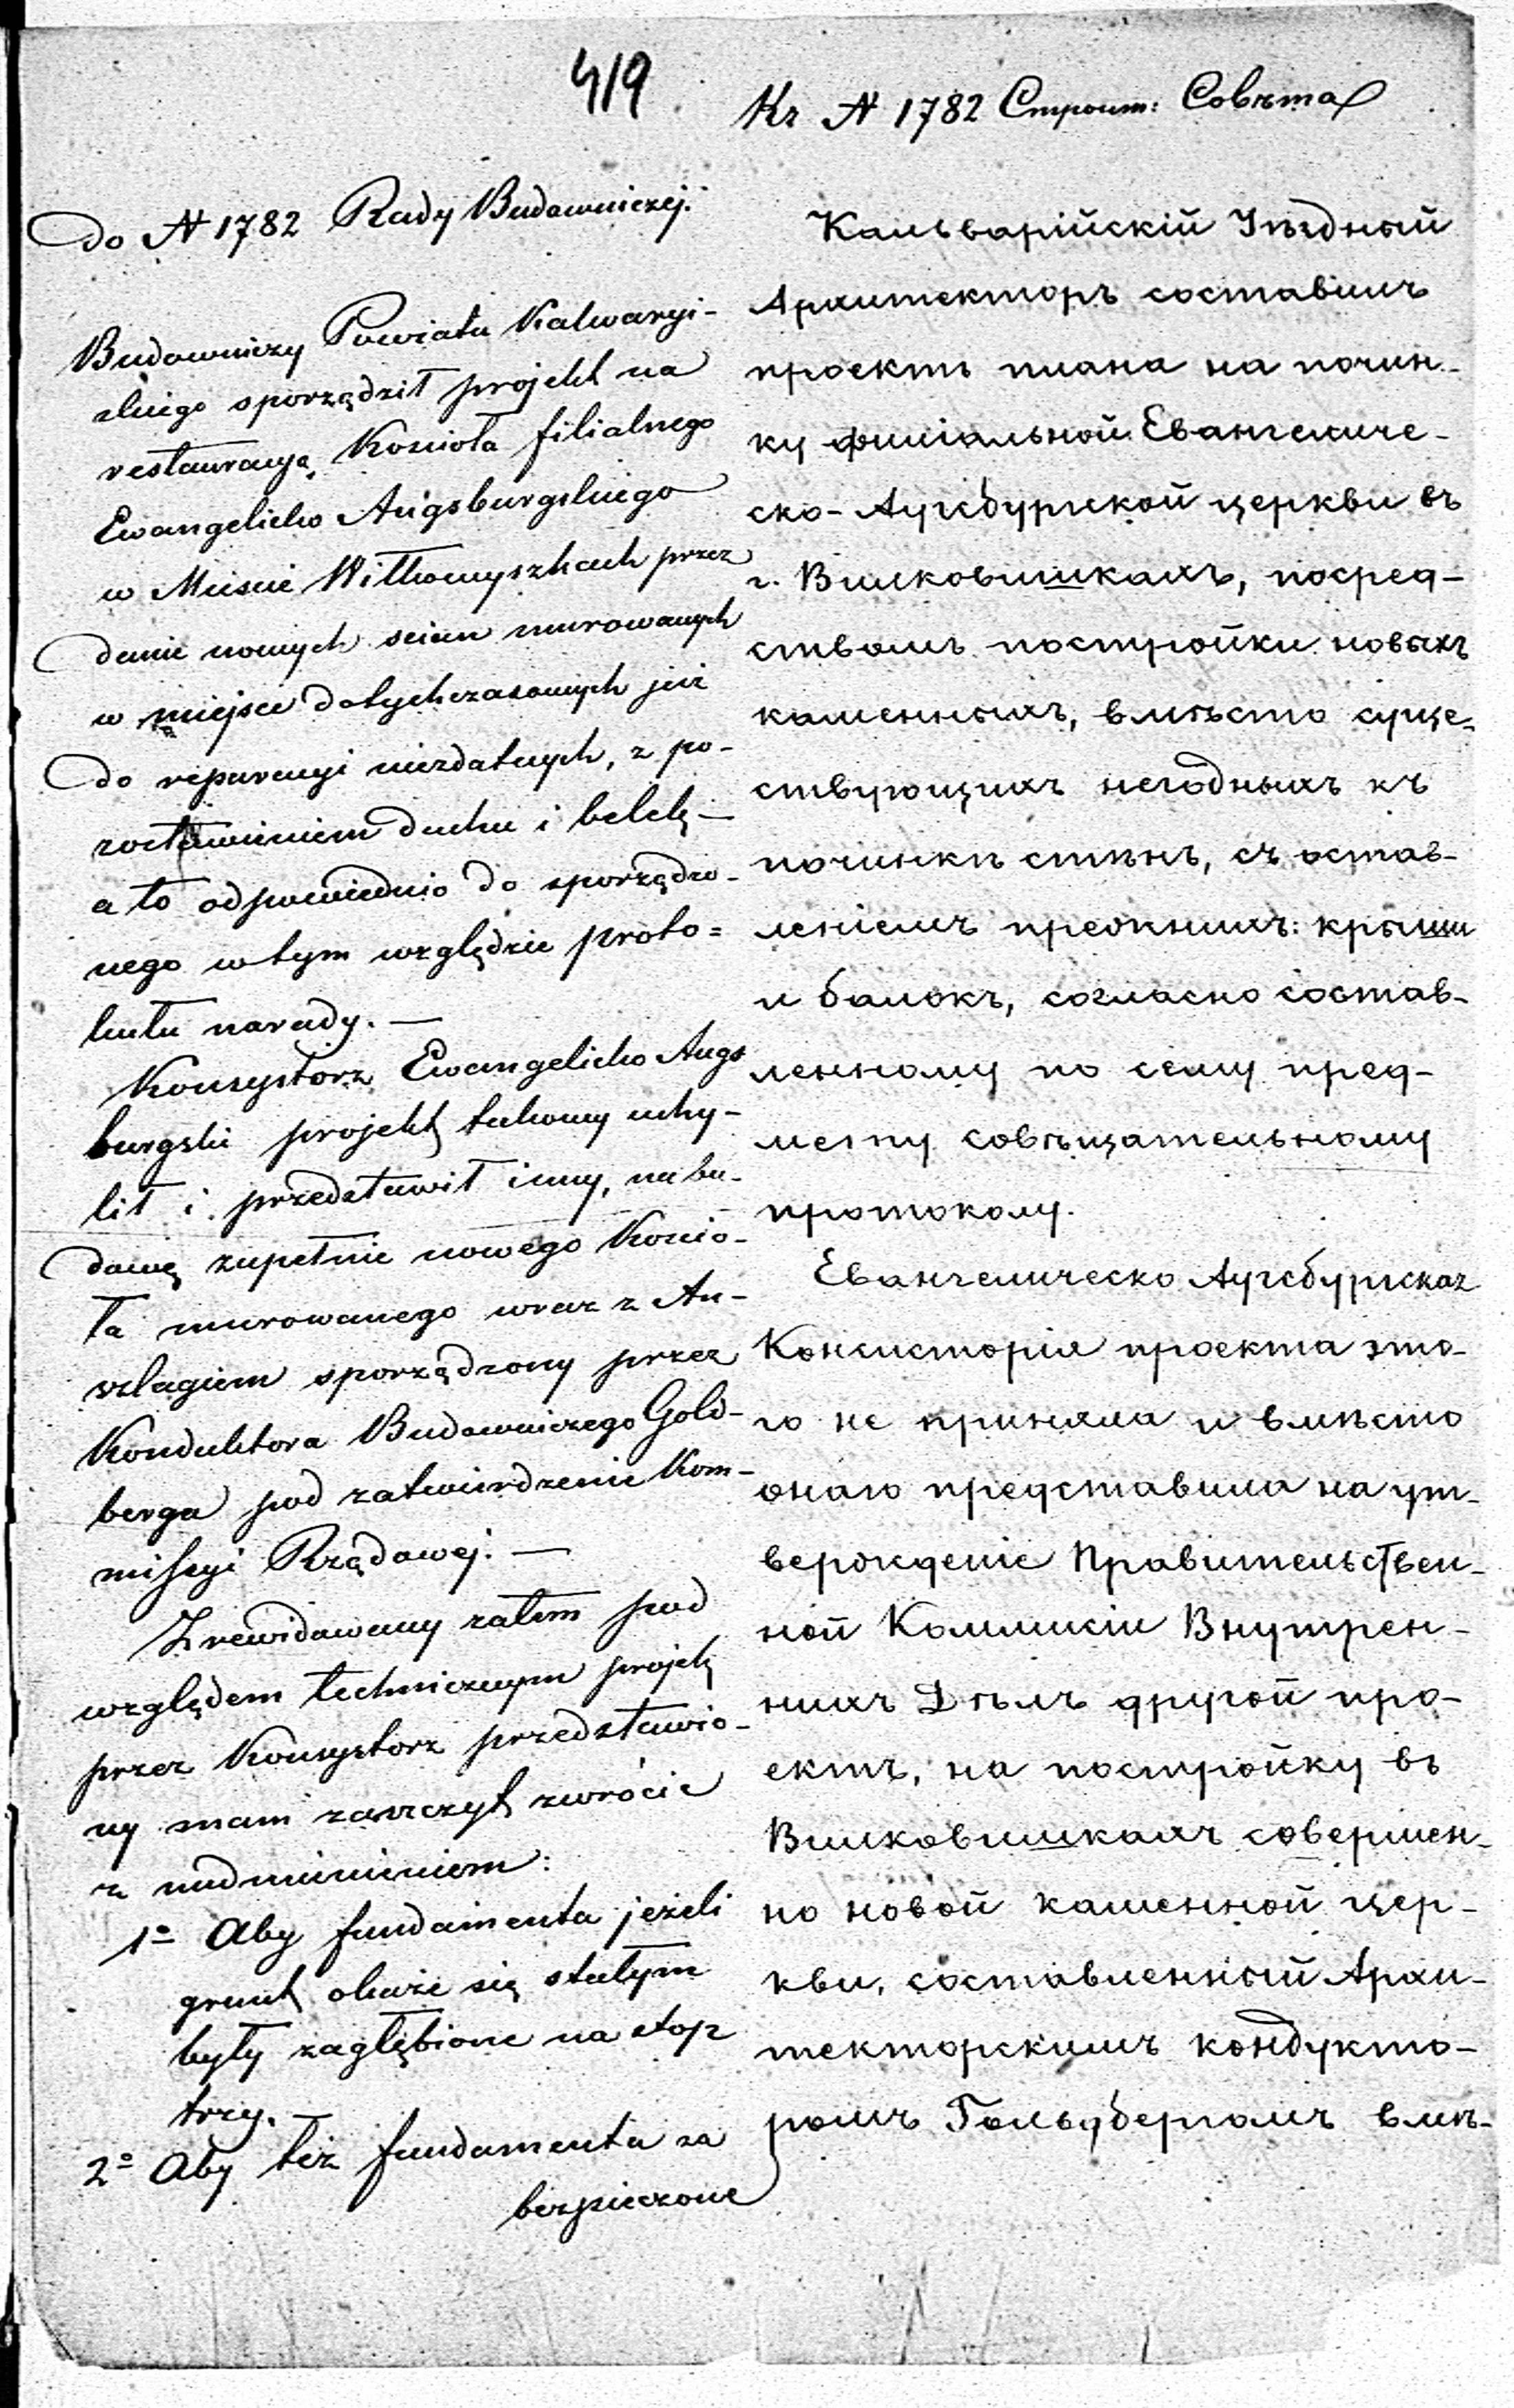 419
do N 1782 Rady Budowniczej.
Budowniczy Powiatu Kalwaryi-
skiego sporządził projekt na
restauracyą Kościoła filialnego
Ewangelicko Augsburgskiego
w Mieście Wiłkowyszkach przez
danie nowych ścian murowanych
w miejsce dotychczasowych już
do reparacyi niezdatnych, z po-
zostawieniem dachu i belek, —
a to odpowiednio do sporządzo-
nego w tym względzie proto=
kułu narady. —
Konsystorz Ewangelicko Augs
burgski projekt takowy uchy-
lił i przedstawił inny, na bu-
dowę zupełnie nowego Kościo-
ła murowanego wraz z An-
szlagiem sporządzony przez
Konduktora Budowniczego Gold-
berga pod zatwierdzenie Kom-
missyi Rządowej. —
Zrewidowany zatem pod
względem technicznym projekt
przez Konsystorz przedstawio-
ny mam zaszczyt zwrócić
z nadmienieniem:
1o Aby fundamenta jeżeli
grunt okaże się stałym
były zagłębione na stop
trzy. —
2o Aby też fundamenta za
bezpieczone
Къ N 1782 Строит: Совѣта
Кальварійскій Уѣздный
Архитекторъ составилъ
проектъ плана на почин-
ку филіальной Евангеличе-
ско-Аугсбургской церкви въ
г. Вилковишкахъ, посред-
ствомъ постройки новыхъ
каменныхъ, вмѣсто суще-
ствующихъ негодныхъ къ
починкѣ стѣнъ, съ остав-
леніемъ прежнихъ: крыши
и балокъ, согласно состав-
ленному по сему пред-
мету совѣщательному
протоколу.
Евангелическо Аугсбургская
Консисторія проекта это-
го не приняла и вмѣсто
онаго представила на ут-
вержденіе Правительствен-
ной Коммисіи Внутрен-
нихъ Дѣлъ другой про-
ектъ, на постройку въ
Вилковишкахъ совершен-
но новой каменной цер-
кви, составленный Архи-
текторскимъ кондукто-
ромъ Гольдбергомъ вмѣ-